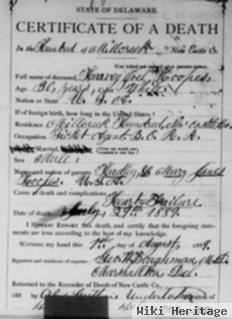 STATE OF DELAWARE.
CERTIFICATE OF A DEATH
In the Hundred of Millcreek New Castle Co.
Full name of deceased, Harvey Joel Hoopes
Age, 30 years, Color, White
Nation or State U. S. A.
If foreign birth, how long in the United States?
Residence Millcreek Hundred, New Castle Co.
Occupation Ticket Agent B. & O. R. R.
Married,
Male
Name and nation of parents Harlan & Mary Jane
Hoopes U. S. A.
Cause of death and complications
Heart Failure
Date of death July 29th 1889.
I HEREBY REPORT this death, and certify that the foregoing
statements are true according to the best of my knowledge.
Witness my hand this 1st day of August, 1889.
Marshallton Del.
Returned to the Recorder of Deeds of New Castle Co.,
188 Undertaker
Wiki Heritage